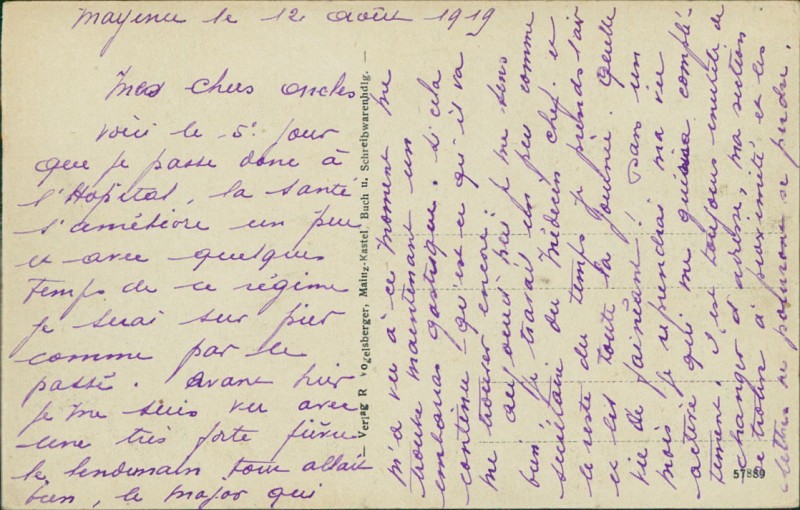 Mayence le 12 août 1919
Mes chers oncles
voici le 5e jour
que je passe donc à
l'Hopital, la santé
s'améliore un peu
et avec quelques
temps de ce régime
je serai sur pier
comme par le
passé. avant hier
je me suis vu avec
une très forte fièvre
le lendemain tout allait
bien, le major qui
m'a vu à ce moment me
trouve maintenant un
embarras gastrique. si cela
continue qu'est ce qu'il va
me trouver encore !
aujourd'hui je me sens
bien ; je travail un peu comme
secrétaire du Médecin chef. et
le reste du temps je prends l'air
et lit toute la journée. Quelle
vie de fainéant ! Dans un
mois je reprendrai ma vie
active qui me complé-
tement. il est toujours inutile de
changer d'adresse, ma section
se trouve à proximité et les
lettres ne pourront se perdre.
— Verlag R Vogelsberger, Mainz-Kastel, Buch u. Schreibwarenhdlg. —
57889